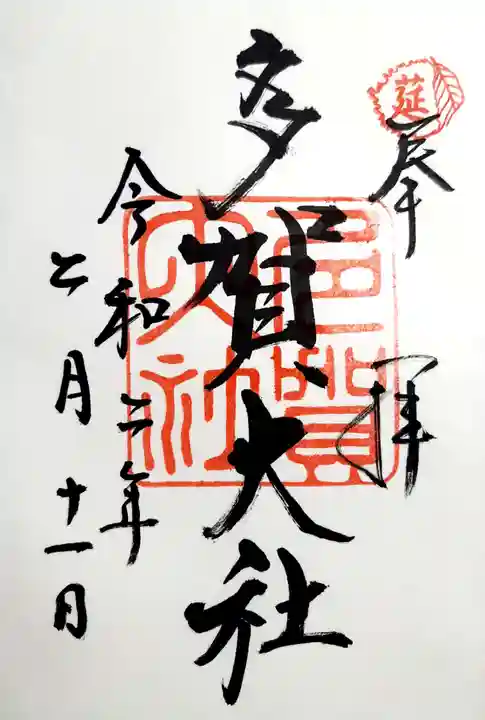 莚
奉拝
多賀大社
多賀大社
令和二年
六月十一日